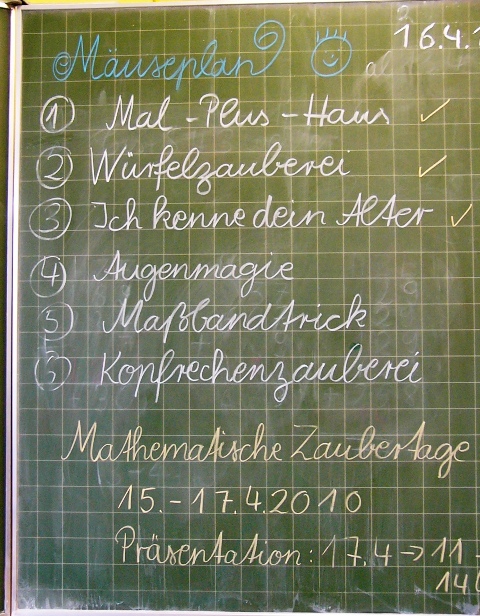 Mäuseplan 16.4.1
① Mal-Plus-Haus ✓
② Würfelzauberei ✓
③ Ich kenne dein Alter ✓
④ Augenmagie
⑤ Maßbandtrick
⑥ Kopfrechenzauberei
Mathematische Zaubertage
15.-17.4.2010
Präsentation: 17.4 → 11-
14